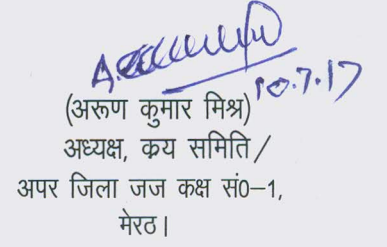 10.7.17
(अरूण कुमार मिश्र)
अध्यक्ष, कय समिति /
अपर जिला जज कक्ष सं0-1,
मेरठ।